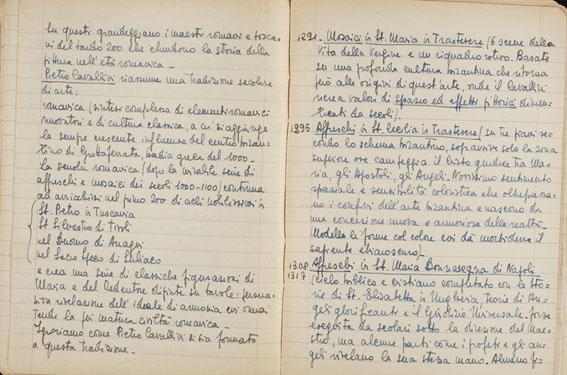 Su questi grandeggiano i maestri romani e tosca-
ni del tardo 200 che chiudono la storia della
pittura nell'età romanica.
Pietro Cavallini riassume una tradizione secolare
di arte:
romanica (sintesi complessa di elementi romanici
innovatori e di cultura classica, a cui si aggiunge
la sempre crescente influenza del centro bizan-
tino di Grottaferrata, badia greca del 1000-
La scuola romanica (dopo la mirabile serie di
affreschi e mosaici dei secoli 1000-1100) continua
ad arricchirsi nel primo 200 di cicli nobilissimi in
St. Pietro in Tuscania
St. Silvestro di Tivoli
nel Duomo di Anagni
nel Sacro Speco di Subiaco
e crea una serie di classiche figurazioni di
Maria e del Redentore dipinte su tavole:
rivelazione dell'ideale di armonia cui ormai
tende la più matura civiltà romanica.
Ignoriamo come Pietro Cavallini si sia formato
a questa tradizione.
1291. Mosaici in St. Maria in Trastevere (6 scene della
Vita della Vergine e un riquadro votivo. Basate
su una profonda cultura bizantina che ritorna
però alle origini di quest'arte, onde il Cavallini
ricrea valori di spazio ed effetti pittorici dimen-
ticati da secoli).
1295 Affreschi in St. Cecilia in Trastevere (su tre pareti se-
condo lo schema bizantino, sopravvive solo la zona
superiore ove campeggia il Cristo giudice tra Ma-
ria, gli Apostoli, gli Angeli. Novissimo sentimento
spaziale e sensibilità coloristica che oltrepassa-
no i confini dell'arte bizantina e nascono da
una concezione nuova e armoniosa della realtà.
Modella le forme col colore cui dà morbidezza il
sapiente chiaroscuro.
1308 Affreschi in St. Maria Donnaregina di Napoli
1317 (ciclo biblico e cristiano completato con le sto-
rie di St. Elisabetta di Ungheria, teorie di An-
geli glorificanti e il Giudizio Universale. Forse
eseguita da scolari sotto la direzione del Mae-
stro, ma alcune parti come i profeti e gli an-
geli rivelano la sua stessa mano. Almeno fi-